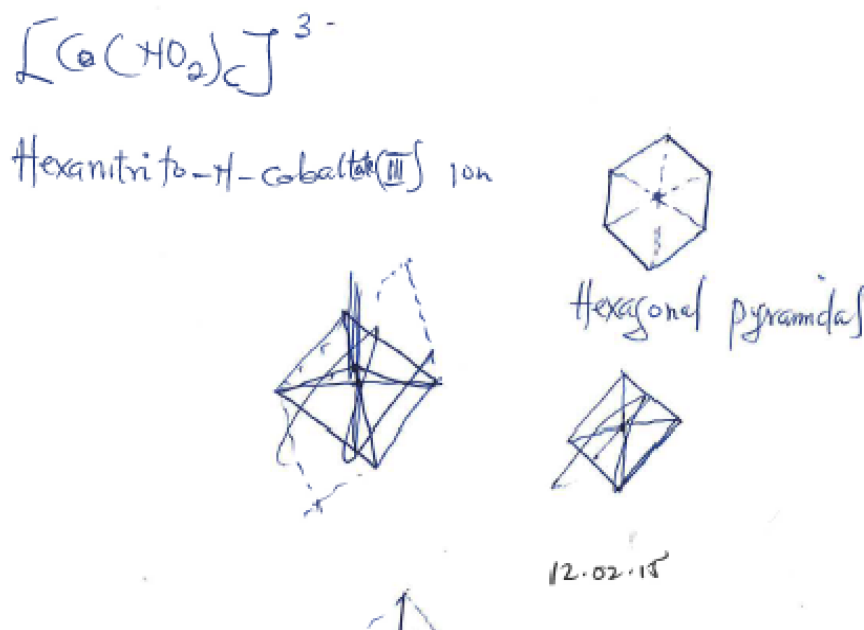 [Co(NO₂)₆]³⁻
Hexanitrito-N-cobaltate(III) ion
Hexagonal pyramidal
12.02.15